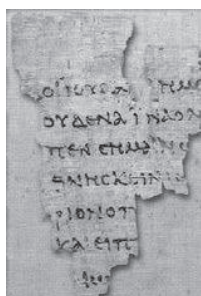 ΟΙΙΟΥΔΑ ΗΜΕ
ΟΥΔΕΝΑΙΝΑΟΛΟ
ΠΕΝCΗΜΑΙΝΩ
ΘΝΗCΚΕΙΝΙ
ΡΙΟΝΟΠ
ΚΑΙΕΙΠ